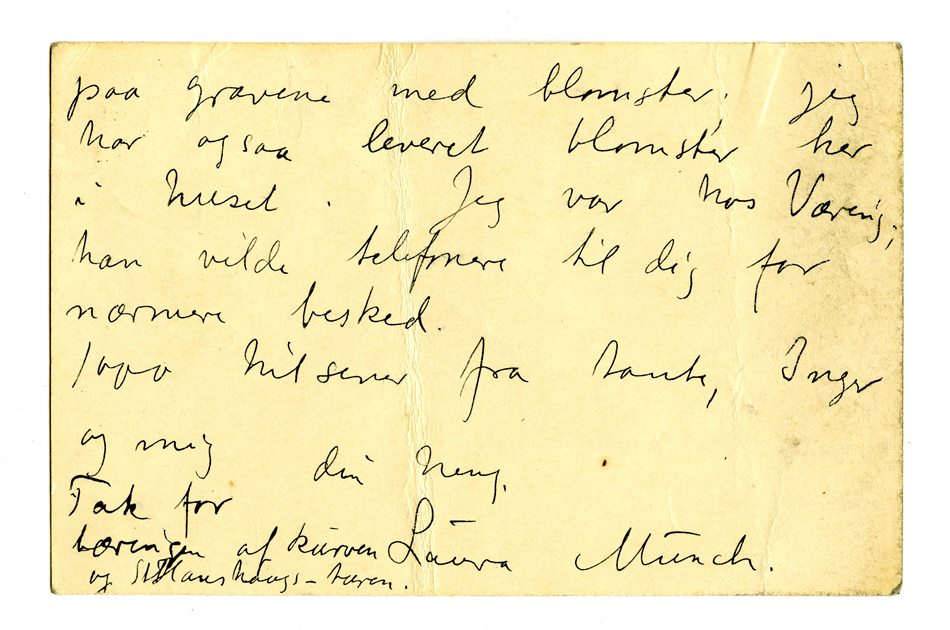 paa gravene med blomster; jeg
har ogsaa leveret blomster her
i huset. Jeg var hos Væring;
han vilde telefonere til dig for
nærmere besked.
1000 hilsener fra tante, Inger
og mig
din heng.
Tak for
bæringen af kurven Laura Munch.
og St.Hanshaugs-turen.